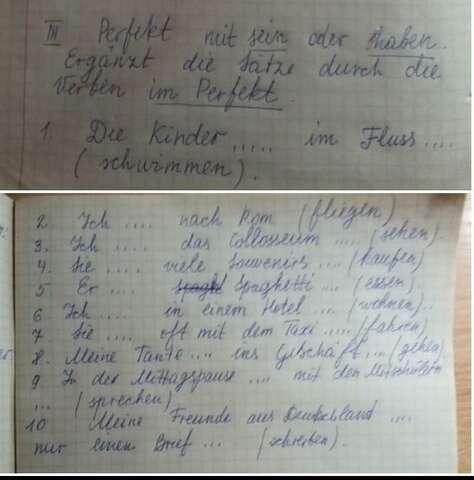 III Perfekt mit sein oder haben.
Ergänzt die Sätze durch die
Verben im Perfekt.
1. Die Kinder ..... im Fluss ....
(schwimmen).
2. Ich .... nach Rom (fliegen)
3. Ich .... das Collosseum .... (sehen).
4. Sie ..... viele Souvenirs .... (kaufen)
5 Er .... Spaghetti .... (essen).
6 Ich .... in einem Hotel .... (wohnen).
7 Sie .... oft mit dem Taxi .... (fahren)
8. Meine Tante .... ins Geschäft ... (gehen)
9 In der Mittagspause .... mit den Mitschülern
... (sprechen)
10 Meine Freunde aus Deutschland ....
mir einen Brief ... (schreiben).